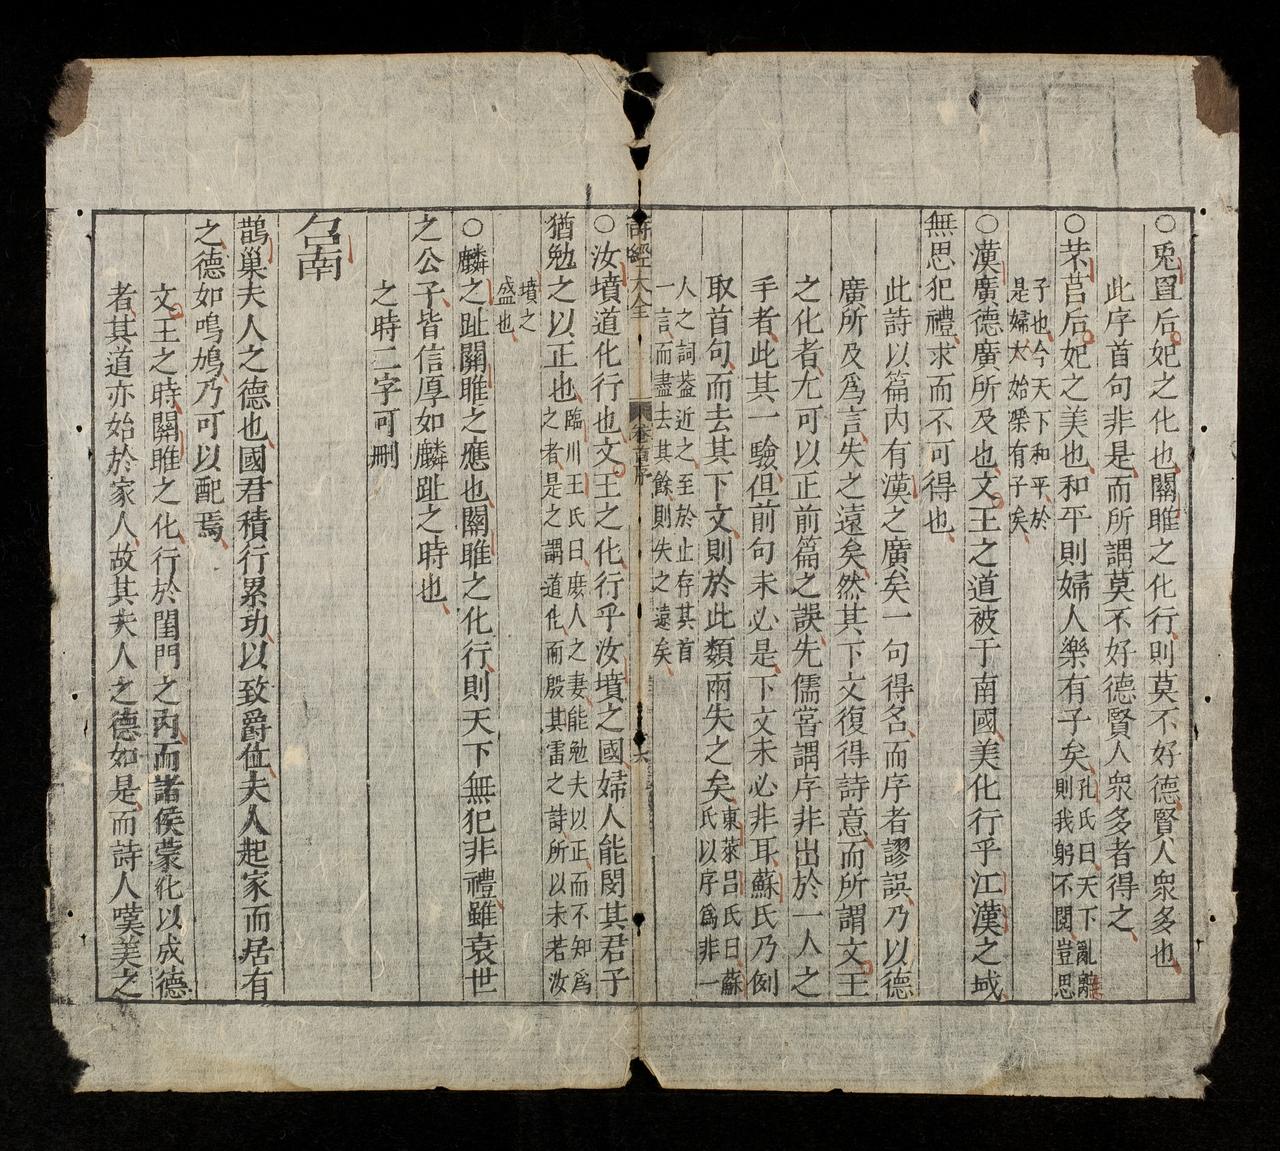 ○兎罝后妃之化也關雎之化行則莫不好德賢人衆多也
此序首句非是而所謂莫不好德賢人衆多者得之
○芣苢后妃之美也和平則婦人樂有子矣孔氏曰天下亂離則我躬不閱豈思
子也今天下和平於是婦人始樂有子矣
○漢廣德廣所及也文王之道被于南國美化行乎江漢之域
無思犯禮求而不可得也
此詩以篇内有漢之廣矣一句得名而序者謬誤乃以德
廣所及爲言失之遠矣然其下文復得詩意而所謂文王
之化者尤可以正前篇之誤先儒嘗謂序非出於一人之
手者此其一驗但前句未必是下文未必非耳蘇氏乃例
取首句而去其下文則於此類兩失之矣東萊呂氏曰蘇氏以序爲非一
人之詞葢近之至於止存其首一言而盡去其餘則失之遠矣
詩經大全 卷首序 六
○汝墳道化行也文王之化行乎汝墳之國婦人能閔其君子
猶勉之以正也臨川王氏曰庶人之妻能勉夫以正而不知爲之者是之謂道化而殷其雷之詩所以未若汝
墳之盛也
○麟之趾關雎之應也關雎之化行則天下無犯非禮雖衰世
之公子皆信厚如麟趾之時也
之時二字可刪
召南
鵲巢夫人之德也國君積行累功以致爵位夫人起家而居有
之德如鳴鳩乃可以配焉
文王之時關雎之化行於閨門之内而諸侯蒙化以成德
者其道亦始於家人故其夫人之德如是而詩人嘆美之